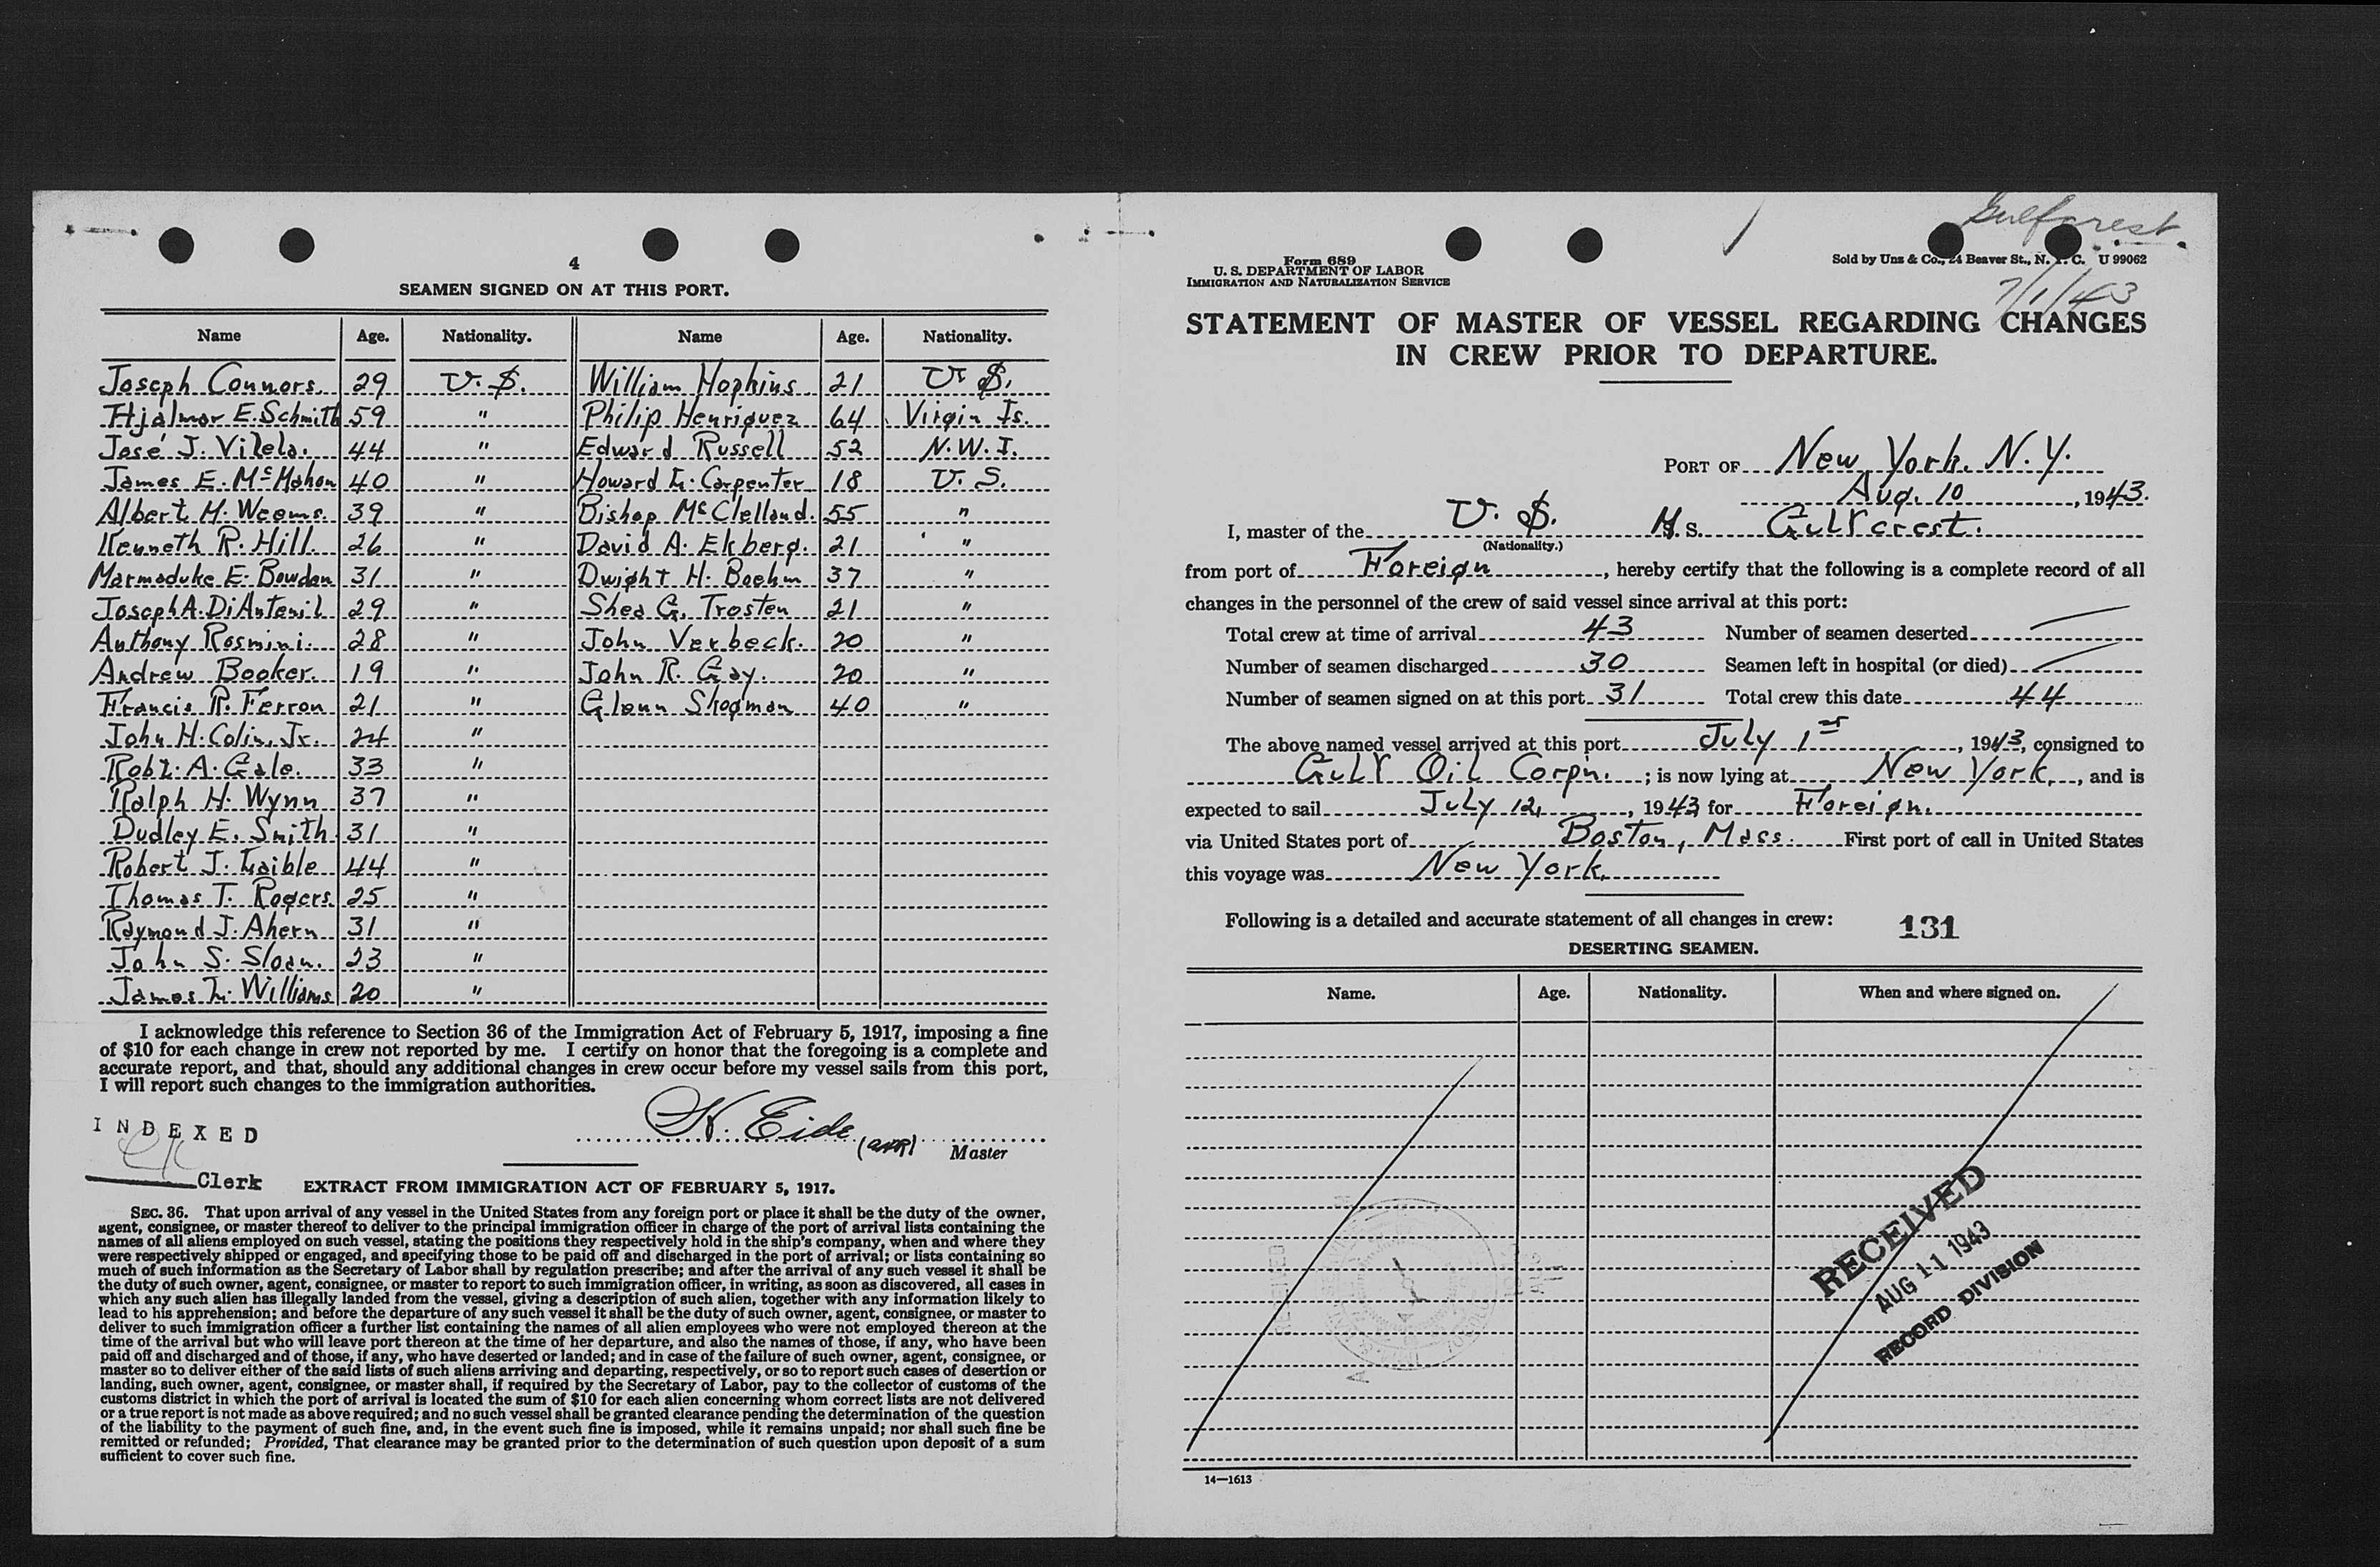 4
SEAMEN SIGNED ON AT THIS PORT.
Name Age. Nationality. Name Age. Nationality.
Joseph Connors. 29 U.S. William Hopkins 21 U.S.
Hjalmar E. Schmith 59 " Philip Henriquez 64 Virgin Is.
José J. Vilela. 44 " Edward Russell 52 N.W.I.
James E. McMahon 40 " Howard L. Carpenter 18 U.S.
Albert H. Weems. 39 " Bishop McClelland. 55 "
Kenneth R. Hill. 26 " David A. Ekberg. 21 "
Marmaduke E. Bowden 31 " Dwight H. Boehm 37 "
Joseph A. 29 " Shea G. Trosten 21 "
Anthony Rosmini. 28 " John Verbeck. 20 "
Andrew Booker. 19 " John R. Gay. 20 "
Francis R. Ferron 21 " Glenn Skogman 40 "
John H. Colin, Jr. 24 "
Robt. A. Gale. 33 "
Ralph H. Wynn 37 "
Dudley E. Smith 31 "
Robert J. Laible 44 "
Thomas T. Rogers. 25 "
Raymond J. Ahern 31 "
John S. Sloan. 23 "
James L. Williams 20 "
I acknowledge this reference to Section 36 of the Immigration Act of February 5, 1917, imposing a fine
of $10 for each change in crew not reported by me. I certify on honor that the foregoing is a complete and
accurate report, and that, should any additional changes in crew occur before my vessel sails from this port,
I will report such changes to the immigration authorities.
INDEXED
H. Eide
Master
Clerk
EXTRACT FROM IMMIGRATION ACT OF FEBRUARY 5, 1917.
SEC. 36. That upon arrival of any vessel in the United States from any foreign port or place it shall be the duty of the owner,
agent, consignee, or master thereof to deliver to the principal immigration officer in charge of the port of arrival lists containing the
names of all aliens employed on such vessel, stating the positions they respectively hold in the ship's company, when and where they
were respectively shipped or engaged, and specifying those to be paid off and discharged in the port of arrival; or lists containing so
much of such information as the Secretary of Labor shall by regulation prescribe; and after the arrival of any such vessel it shall be
the duty of such owner, agent, consignee, or master to report to such immigration officer, in writing, as soon as discovered, all cases in
which any such alien has illegally landed from the vessel, giving a description of such alien, together with any information likely to
lead to his apprehension; and before the departure of any such vessel it shall be the duty of such owner, agent, consignee, or master to
deliver to such immigration officer a further list containing the names of all alien employees who were not employed thereon at the
time of the arrival but who will leave port thereon at the time of her departure, and also the names of those, if any, who have been
paid off and discharged and of those, if any, who have deserted or landed; and in case of the failure of such owner, agent, consignee, or
master so to deliver either of the said lists of such aliens arriving and departing, respectively, or so to report such cases of desertion or
landing, such owner, agent, consignee, or master shall, if required by the Secretary of Labor, pay to the collector of customs of the
customs district in which the port of arrival is located the sum of $10 for each alien concerning whom correct lists are not delivered
or a true report is not made as above required; and no such vessel shall be granted clearance pending the determination of the question
of the liability to the payment of such fine, and, in the event such fine is imposed, while it remains unpaid; nor shall such fine be
remitted or refunded; Provided, That clearance may be granted prior to the determination of such question upon deposit of a sum
sufficient to cover such fine.
Gulfcrest.
Form 689
U. S. DEPARTMENT OF LABOR
IMMIGRATION AND NATURALIZATION SERVICE
Sold by Unz & Co., 24 Beaver St., N. Y. C. U 99062
7/1/43
STATEMENT OF MASTER OF VESSEL REGARDING CHANGES
IN CREW PRIOR TO DEPARTURE.
PORT OF New York. N.Y.
Aug. 10, 1943.
I, master of the U.S. M.S. Gulfcrest.
(Nationality.)
from port of Foreign, hereby certify that the following is a complete record of all
changes in the personnel of the crew of said vessel since arrival at this port:
Total crew at time of arrival 43 Number of seamen deserted
Number of seamen discharged 30 Seamen left in hospital (or died)
Number of seamen signed on at this port 31 Total crew this date 44
The above named vessel arrived at this port July 1st, 1943, consigned to
Gulf Oil Corp'n.; is now lying at New York, and is
expected to sail July 12, 1943 for Foreign.
via United States port of Boston, Mass. First port of call in United States
this voyage was New York.
Following is a detailed and accurate statement of all changes in crew:
131
DESERTING SEAMEN.
Name. Age. Nationality. When and where signed on.
RECEIVED
AUG 11 1943
RECORD DIVISION
14—1613